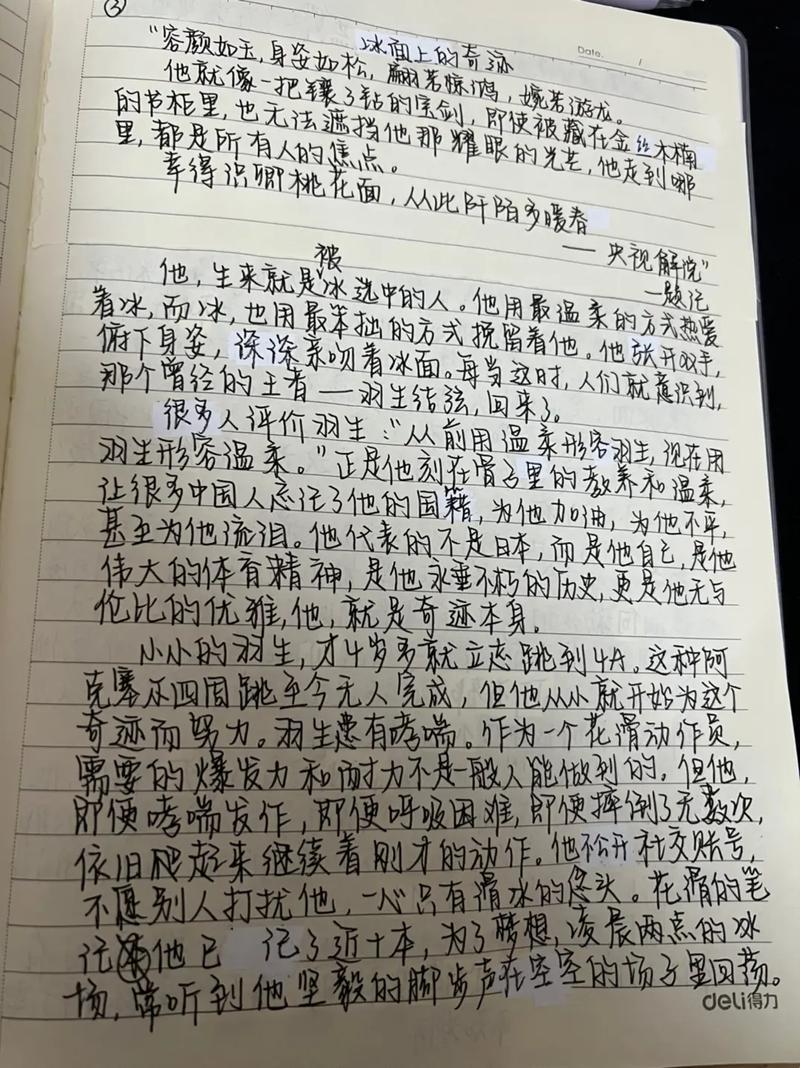 ③
冰面上的奇迹
Date. /
“容颜如玉，身姿如松，翩若惊鸿，婉若游龙。
他就像一把镶了钻的宝剑，即使被藏在金丝木楠
的书柜里，也无法遮挡他那耀眼的光芒，他走到哪
里，都是所有人的焦点。
幸得识卿桃花面，从此阡陌多暖春
——央视解说”
—题记
他，生来就是被冰选中的人。他用最温柔的方式热爱
着冰，而冰，也用最笨拙的方式挽留着他。他张开双手，
俯下身姿，深深亲吻着冰面。每当这时，人们就意识到，
那个曾经的王者——羽生结弦，回来了。
很多人评价羽生：“从前用温柔形容羽生，现在用
羽生形容温柔。”正是他刻在骨子里的教养和温柔，
让很多中国人忘记了他的国籍，为他加油，为他不平，
甚至为他流泪。他代表的不是日本，而是他自己，是他
伟大的体育精神，是他永垂不朽的历史，更是他无与
伦比的优雅，他，就是奇迹本身。
小小的羽生，才4岁多就立志跳到4A，这种阿
克塞尔四周跳至今无人完成，但他从小就开始为这个
奇迹而努力。羽生患有哮喘。作为一个花滑动作员，
需要的爆发力和耐力不是一般人能做到的。但他，
即便哮喘发作，即便呼吸困难，即便摔倒了无数次，
依旧爬起来继续着刚才的动作。他不公开社交账号，
不愿别人打扰他，一心只有滑冰的念头。花滑的笔
记他已记了近十本，为了梦想，凌晨两点的冰
场，常听到他坚毅的脚步声在空空的场子里回荡。
deli得力